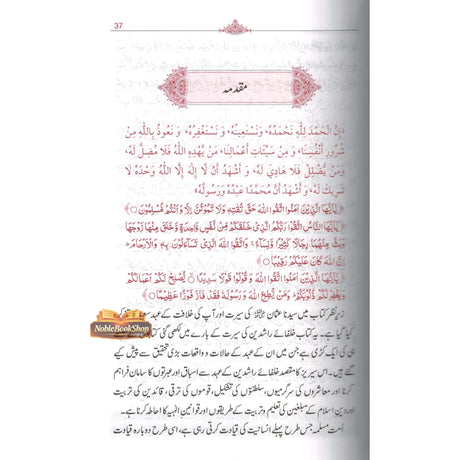 37
مقدمہ
﴿إِنَّ الْحَمْدَ لِلَّهِ نَحْمَدُهُ، وَنَسْتَعِينُهُ، وَ نَسْتَغْفِرُهُ، وَ نَعُوذُ بِاللَّهِ مِنْ
شُرُورِ أَنْفُسِنَا، وَ مِنْ سَيِّئَاتِ أَعْمَالِنَا، مَنْ يَهْدِهِ اللَّهُ فَلَا مُضِلَّ لَهُ،
وَ مَنْ يُضْلِلْ فَلَا هَادِيَ لَهُ، وَ أَشْهَدُ أَنْ لَّا إِلَهَ إِلَّا اللَّهُ وَحْدَهُ لَا
شَرِيكَ لَهُ، وَ أَشْهَدُ أَنَّ مُحَمَّدًا عَبْدُهُ وَرَسُولُهُ﴾
﴿يٰٓاَيُّهَا الَّذِيْنَ اٰمَنُوا اتَّقُوا اللّٰهَ حَقَّ تُقٰتِهٖ وَلَا تَمُوْتُنَّ اِلَّا وَ اَنْتُمْ مُّسْلِمُوْنَ﴾
﴿يٰٓاَيُّهَا النَّاسُ اتَّقُوْا رَبَّكُمُ الَّذِيْ خَلَقَكُمْ مِّنْ نَّفْسٍ وَّاحِدَةٍ وَّ خَلَقَ مِنْهَا زَوْجَهَا
وَ بَثَّ مِنْهُمَا رِجَالًا كَثِيْرًا وَّ نِسَآءً وَ اتَّقُوا اللّٰهَ الَّذِيْ تَسَآءَلُوْنَ بِهٖ وَ الْاَرْحَامَ
اِنَّ اللّٰهَ كَانَ عَلَيْكُمْ رَقِيْبًا﴾
﴿يٰٓاَيُّهَا الَّذِيْنَ اٰمَنُوا اتَّقُوا اللّٰهَ وَ قُوْلُوْا قَوْلًا سَدِيْدًا يُّصْلِحْ لَكُمْ اَعْمَالَكُمْ
وَ يَغْفِرْ لَكُمْ ذُنُوْبَكُمْ وَ مَنْ يُّطِعِ اللّٰهَ وَ رَسُوْلَهٗ فَقَدْ فَازَ فَوْزًا عَظِيْمًا﴾
زیر نظر کتاب میں سیدنا عثمان کی سیرت اور آپ کی خلافت کے عہد کرہ
کیا گیا ہے۔ یہ کتاب خلفائے راشدین کی سیرت کے بارے میں لکھی گئی
ہی کی ایک کڑی ہے جن میں ان کے عہد کے حالات و واقعات بڑی تحقیق سے پیش کیے
گئے ہیں۔ اس سیریز کا مقصد خلفائے راشدین کے عہد سے اسباق اور عبرتوں کا سامان فراہم
کرنا اور معاشروں کی سرگرمیوں، سلطنتوں کی تشکیل، قوموں کی ترقی، قائدین کی تربیت
اور دین اسلام کے مبلغین کی تعلیم و تربیت کے طریقوں اور قوانین الٰہیہ کا احاطہ کرنا ہے۔
اُمت مسلمہ جس طرح پہلے انسانیت کی قیادت کرتی رہی ہے، اسی طرح دوبارہ قیادت
NobleBookShop